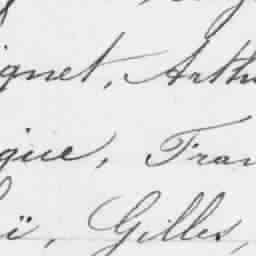 gnet, Arthu
que, Fran
ï, Gilles,